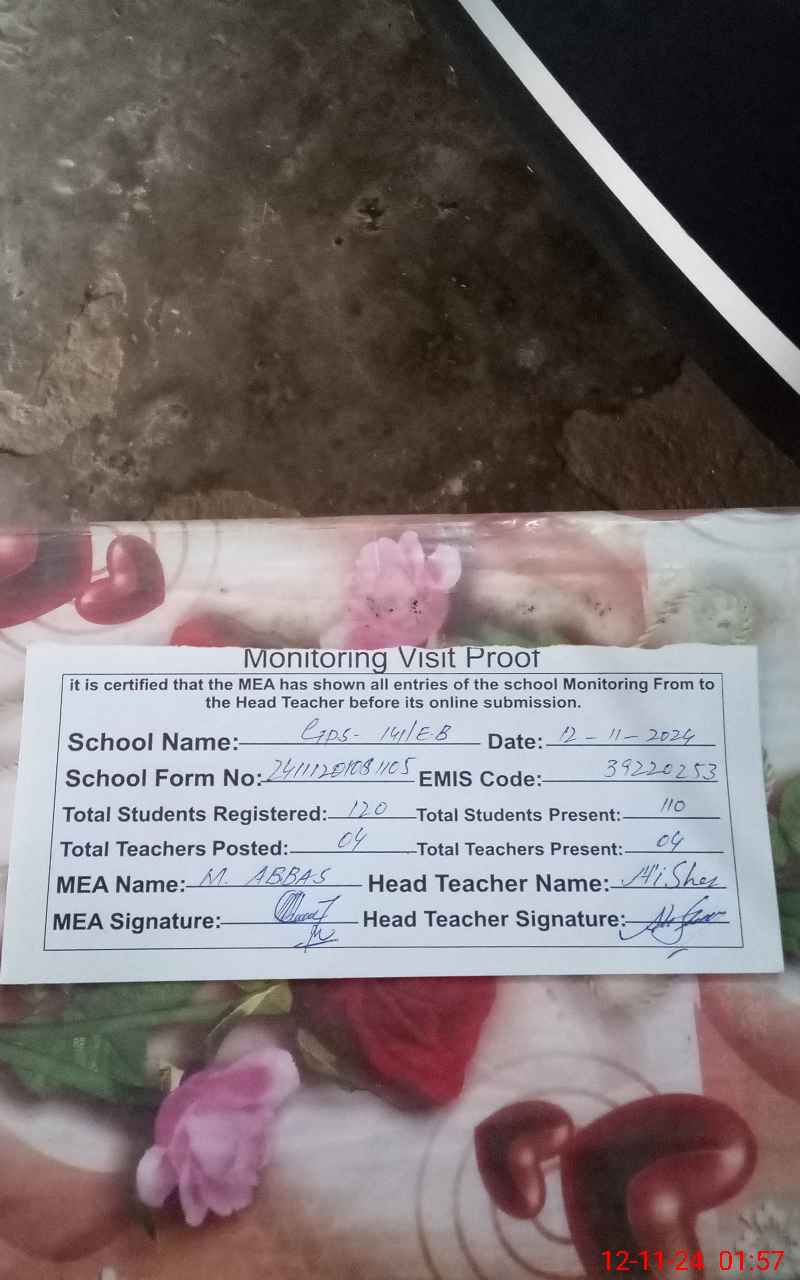 Monitoring Visit Proof
it is certified that the MEA has shown all entries of the school Monitoring From to
the Head Teacher before its online submission.
School Name: GPS- 141/E.B Date: 12-11-2024
School Form No: EMIS Code: 39220253
Total Students Registered: 120 Total Students Present: 110
Total Teachers Posted: 04 Total Teachers Present: 04
MEA Name: M. ABBAS Head Teacher Name:
MEA Signature: Head Teacher Signature:
12-11-24 01:57